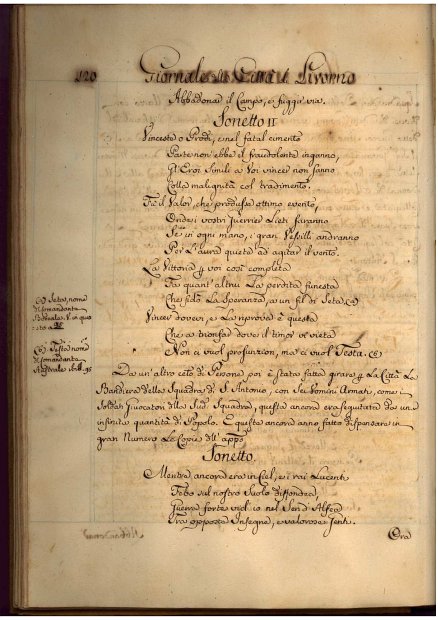 120 Giornale Città di Livorno
Abbadonai il Campo, e fuggii via.
Sonetto II
Vinceste o Prodi, e nel fatal cimento
Parte non ebbe il fraudolente inganno,
Gl'Eroi simili a Voi vincer non sanno
Colla malignità col tradimento.
Fù il Valor, che produsse ottimo evento,
Ond'i vostri guerrier Lieti faranno
Se in ogni mano, i gran Vessilli andranno
Per L'aura quieta ad agitar il vento.
La Vittoria p voi così completa
Fa quant'altrui La perdita funesta
Che fidò La Speranza a un fil di Seta.
Vincer dovevi, e La riprova è questa
Che a trionfar dove il timor vi vieta
Non ci vuol prosunzion, ma ci vuol Testa.
Seta, nome
Testa nome
Da un'altro ceto di Persone poi è stata fatta girare p La Città La
Bandiera della Squadra di S. Antonio, con Sei Uomini Armati, come i
Soldati Giuocatori della Squadra, questa ancora era seguitata da una
infinita quantità di Popolo. E questa ancora anno fatto dispensare in
gran Numero Le Copie dell'
Sonetto.
Mentre ancora era in Ciel, e i rai Lucenti
Febo sul nostro Suolo diffondea,
Guerra forte vid'io nel Sen d'Alfea
Fra opposte Insegne, e valorose genti.
Ora